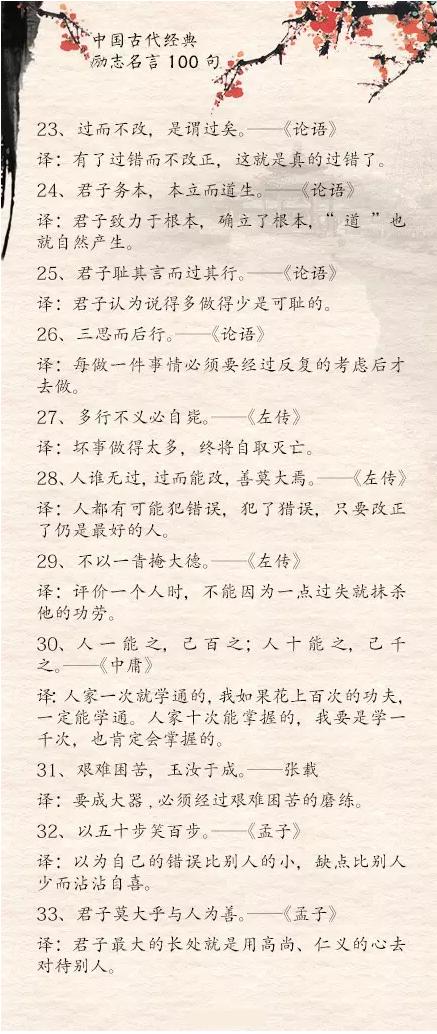 中国古代经典
励志名言 100 句
23、过而不改，是谓过矣。——《论语》
译：有了过错而不改正，这就是真的过错了。
24、君子务本，本立而道生。——《论语》
译：君子致力于根本，确立了根本，“ 道 ”也
就自然产生。
25、君子耻其言而过其行。——《论语》
译：君子认为说得多做得少是可耻的。
26、三思而后行。——《论语》
译：每做一件事情必须要经过反复的考虑后才
去做。
27、多行不义必自毙。——《左传》
译：坏事做得太多，终将自取灭亡。
28、人谁无过，过而能改，善莫大焉。——《左传》
译：人都有可能犯错误，犯了猎误，只要改正
了仍是最好的人。
29、不以一眚掩大德。——《左传》
译：评价一个人时，不能因为一点过失就抹杀
他的功劳。
30、人一能之，己百之；人十能之，己千
之。——《中庸》
译：人家一次就学通的，我如果花上百次的功夫，
一定能学通。人家十次能掌握的，我要是学一
千次，也肯定会掌握的。
31、艰难困苦，玉汝于成。——张载
译：要成大器，必须经过艰难困苦的磨练。
32、以五十步笑百步。——《孟子》
译：以为自己的错误比别人的小，缺点比别人
少而沾沾自喜。
33、君子莫大乎与人为善。——《孟子》
译：君子最大的长处就是用高尚、仁义的心去
对待别人。